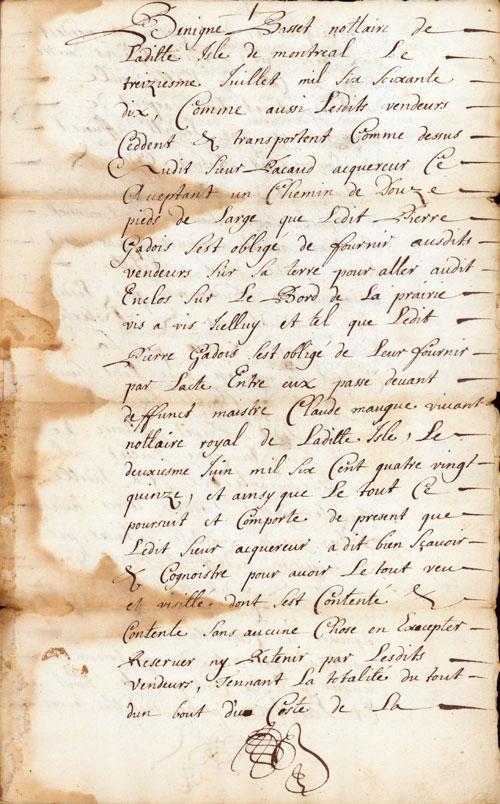 Benigne Basset nottaire de
Laditte Isle de montreal Le
treiziesme Juillet mil six soixante
dix, Comme aussi Lesdits vendeurs
Ceddent & transportent Comme dessus
Audit sieur Pacaud acquereur Ce
Acceptant un Chemin de Douze
pieds de Large que Ledit Pierre
Gadois sest obligé de fournir ausdits
vendeurs sur sa terre pour aller audit
Enclos sur Le Bord de La prairie
vis a vis Icelluy et tel que Ledit
Pierre Gadois sest obligé de Leur fournir
par Lacte Entre eux passe devant
deffunct maistre Claude maugue vivant
nottaire royal de Laditte Isle, Le
deuxiesme Juin mil six Cent quatre vingt
quinze, et ainsy que Le tout Ce
poursuit et Comporte de present que
Ledit sieur acquereur a dit bien sçavoir
& Cognoistre pour avoir Le tout veu
et visitté dont sest Contenté &
Contente sans aucune Chose en Excepter
Reserver ny Retenir par Lesdits
vendeurs, Tennant La totalité du tout
dun bout du Costé de La